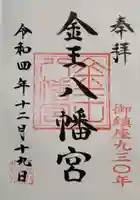 奉拝
御鎮座九三〇年
金王八幡宮
令和四年十二月十九日